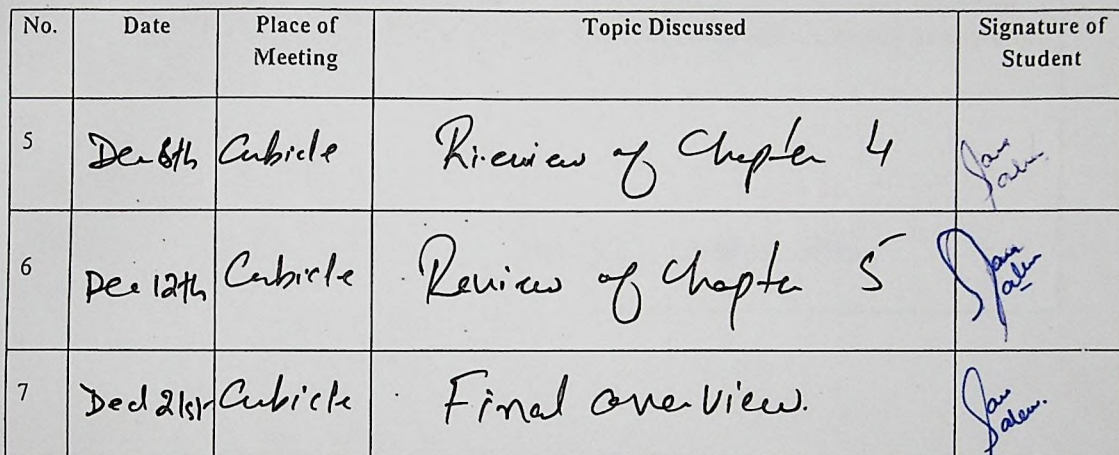 No. Date Place of Meeting Topic Discussed Signature of Student
5 Dec 8th Cubicle Review of Chapter 4
6 Dec 12th Cubicle Review of Chapter 5
7 Dec 21st Cubicle Final overview.